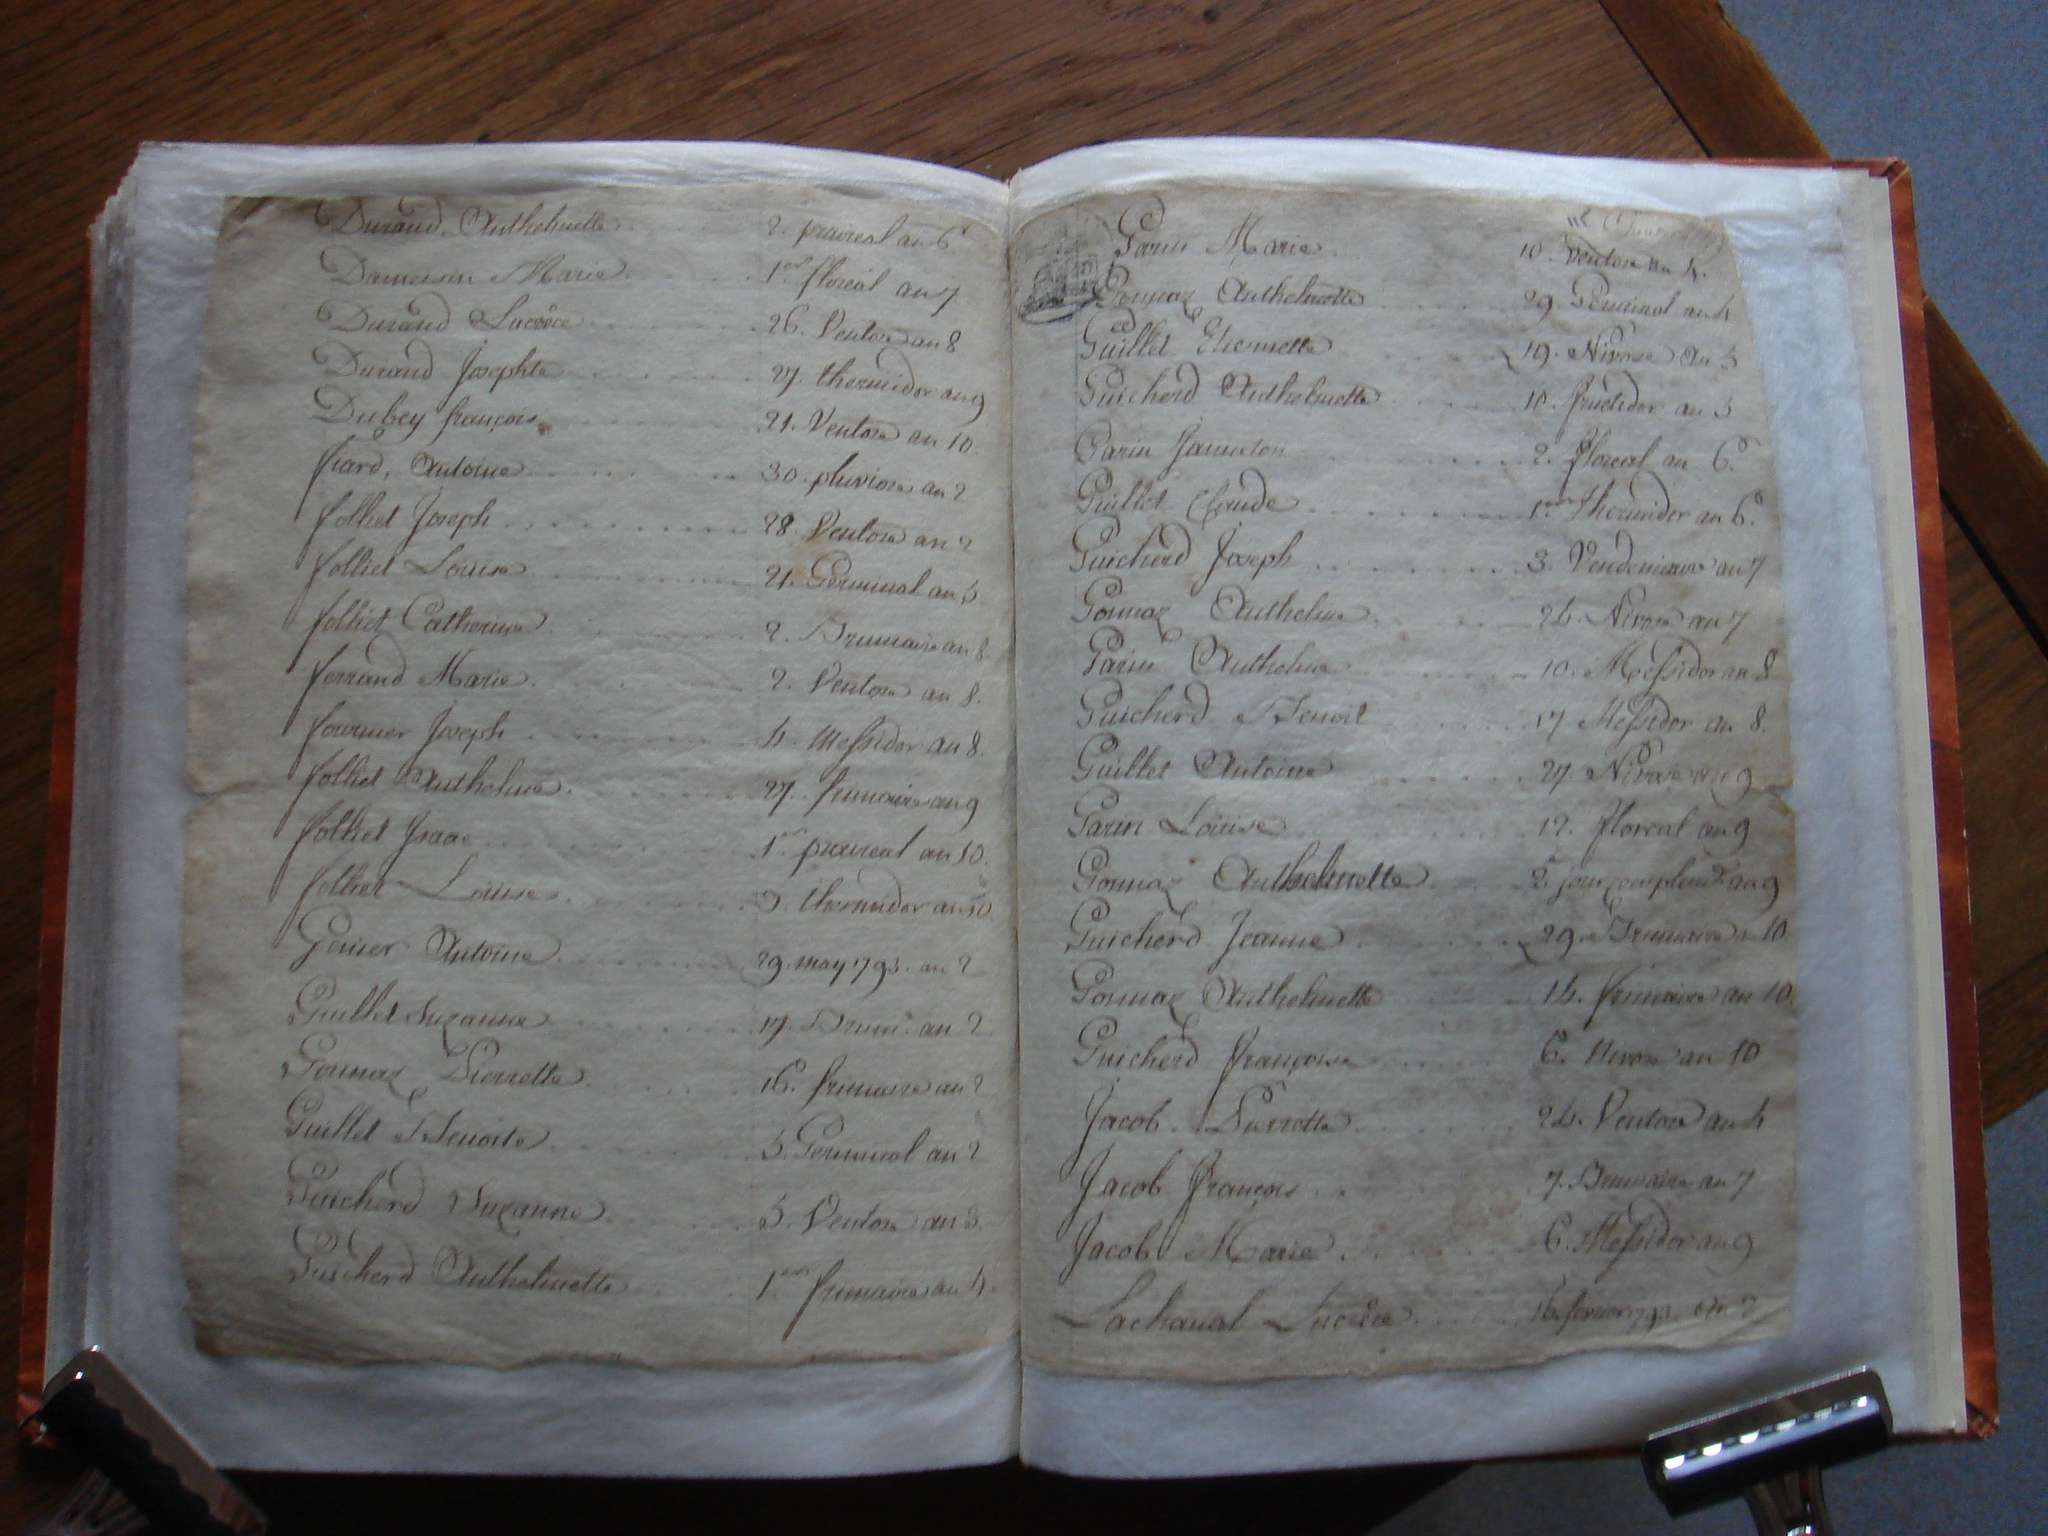 Durand, Anthelmette 2. prairéal an 6
Dameson Marie 1er floréal an 7
Durand Lucrèce 26 Ventose an 8
Durand Josephte 27 thermidor an 9
Dubey françois 21. Ventose an 10
fiard, Antoine 30. pluviose an 2
folliet Joseph 28 Ventose an 2
folliet Louise 21. Germinal an 5
folliet Catherine 2. Brumaire an 8
ferrand Marie 2. Ventose an 8.
fournier Joseph 4. Messidor an 8.
folliet Anthelme 27. frimaire an 9
folliet Isaac 1er prairéal an 10.
folliet Louise thermidor an 10
Antoine 29. may 1793. an 2
Guillet Suzanne 17. Brum. an 2
Gonnaz Pierrette 16. frimaire an 2
Guillet Benoite 5. Germinal an 2
Guicherd Suzanne 5. Ventose an 3.
Guicherd Anthelmette 1er frimaire an 4.
Garin Marie 10. Ventose an 4.
Gonnaz Anthelmette 29 Germinal an 4
Guillet Etiennette 19. Nivose an 5
Guicherd Anthelmette 10. fructidor an 5
Garin 2. floréal an 6.
Guillet Claude 1er Thermidor an 6.
Guicherd Joseph 3. Vendemiaire an 7
Gonnaz Anthelme 24. Nivose an 7
Garin Anthelme 10. Messidor an 8
Guicherd Benoit 17 Messidor an 8.
Guillet Antoine 27. Nivose an 9
Garin Louise 12. floréal an 9
Gonnaz Anthelmette 2e jour complem.re an 9
Guicherd Jeanne 29. Brumaire an 10
Gonnaz Anthelmette 14. frimaire an 10.
Guicherd françoise 6. Nivose an 10
Jacob Pierrette 24. Ventose an 4
Jacob françois 7. Brumaire an 7
Jacob Marie 6. Messidor an 9
Lachanal Lucrèce 16. fevrier 1793. An 2